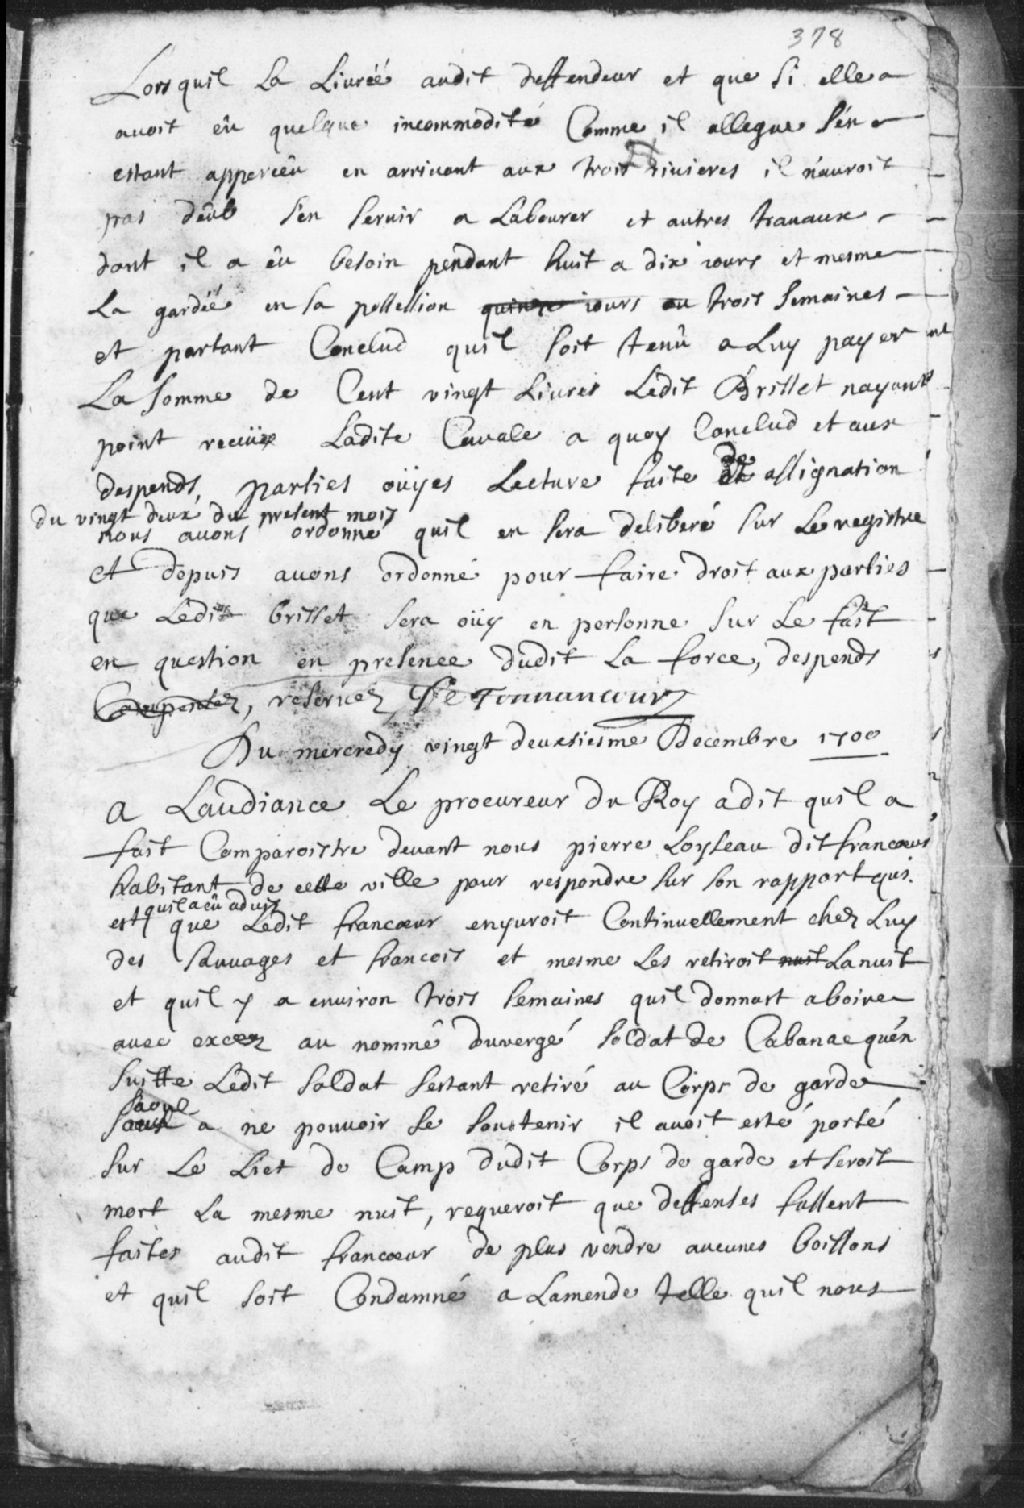 378
Lors quil La Liuréé audit deffendeur et que si elle
auoit êu quelque incommodité Comme il allegue sén
estant apperceû en arriuant aux trois riuieres il nauroit
pas deub s'en seruir a Labourer et autres trauaux
dont il a êu besoin pendant huit a dix iours et mesme
La gardéé en sa possession quinze iours ou trois semaines
et partant Conclud quil soit tenû a Luy payer
La somme de Cent vingt Liures Ledit Brisset nayant
point receüe Ladite Cauale a quoy Conclud et aux
despends, parties oüyes Lecture faite de assignation
du vingt deux du present mois
nous auons ordonné quil en sera deliberé sur Le registre
et depuis auons ordonné pour faire droit aux parties
que Ledit brisset sera oüy en personne sur Le fait
en question en presence dudit La force, despends
reseruez De Tonnancour
Du mercredy vingt deuxsiesme Decembre 1700
A Laudiance Le procureur du Roy a dit quil a
fait Comparoistre deuant nous pierre Loyseau dit francoeur
habitant de cette ville pour respondre sur son rapport qui
quil a eû aduis
est que Ledit francoeur enyuroit Continuellement chez Luy
des sauuages et francois et mesme Les retiroit nuit La nuit
et quil y a enuiron trois semaines quil donnart a boire
auec excez au nommé duvergé soldat de Cabanac quén
suitte Ledit soldat sestant retiré au Corps de garde
saoul
a ne pouuoir se soustenir il auoit esté porté
sur Le Lict de Camp dudit Corps de garde et seroit
mort La mesme nuit, requeroit que deffenses fussent
faites audit francoeur de plus vendre aucunes boissons
et quil soit Condamné a Lamende telle quil nous